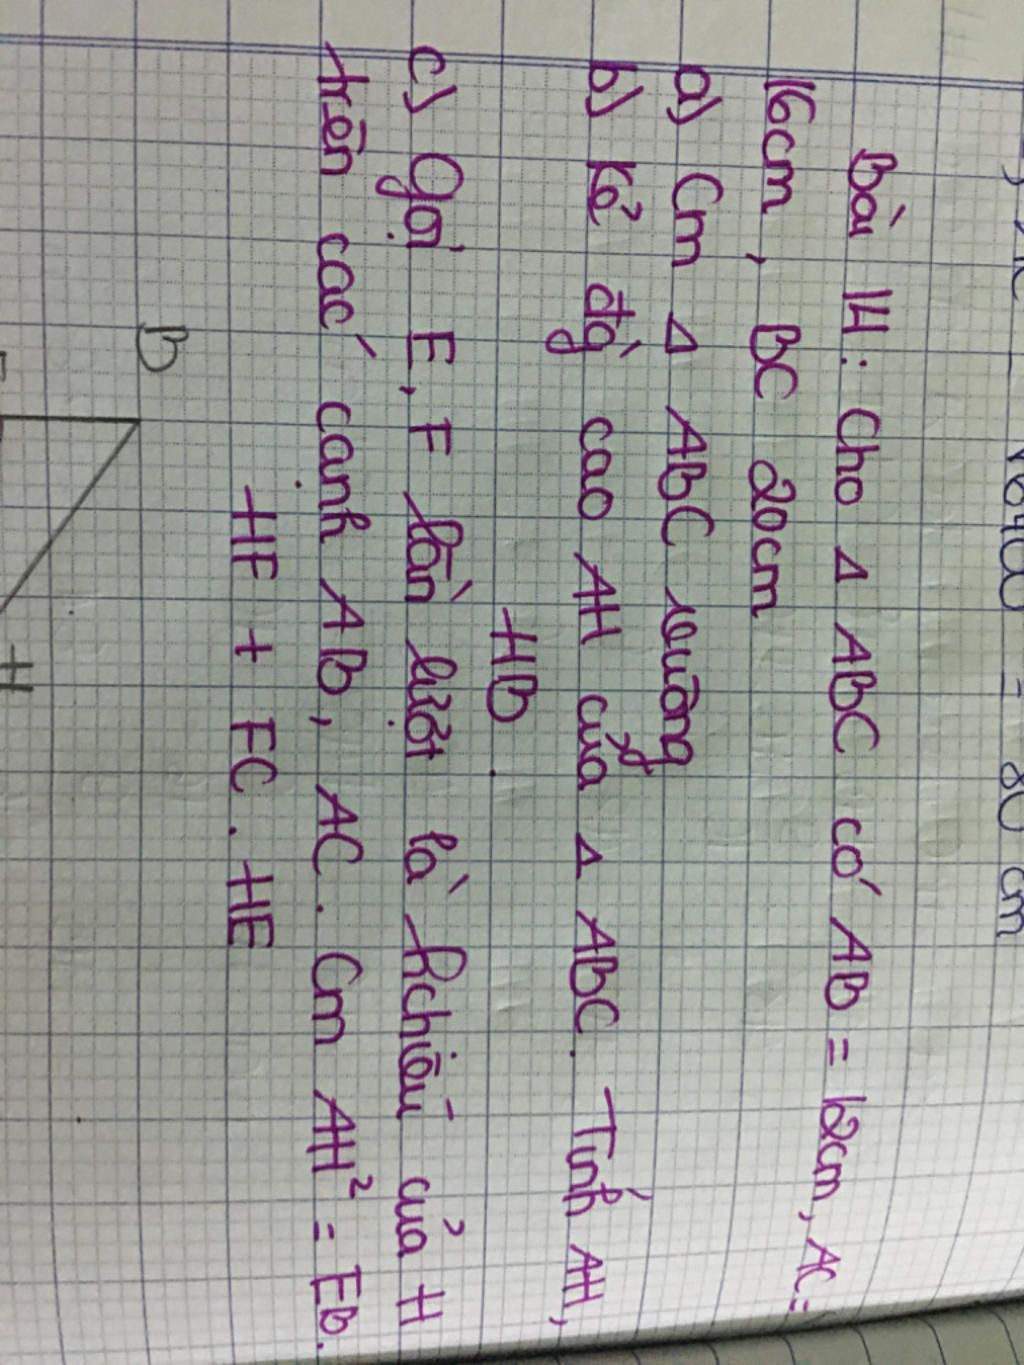 √6400 = 80 cm
Bài 14: Cho Δ ABC có AB = 12cm, AC =
16cm, BC 20cm
a) Cm Δ ABC vuông
b) Kẻ đg cao AH của Δ ABC. Tính AH,
HB.
c) Gọi E, F lần lượt là hchiếu của H
trên các cạnh AB, AC. Cm AH² = EB.
HF + FC. HE
B
H